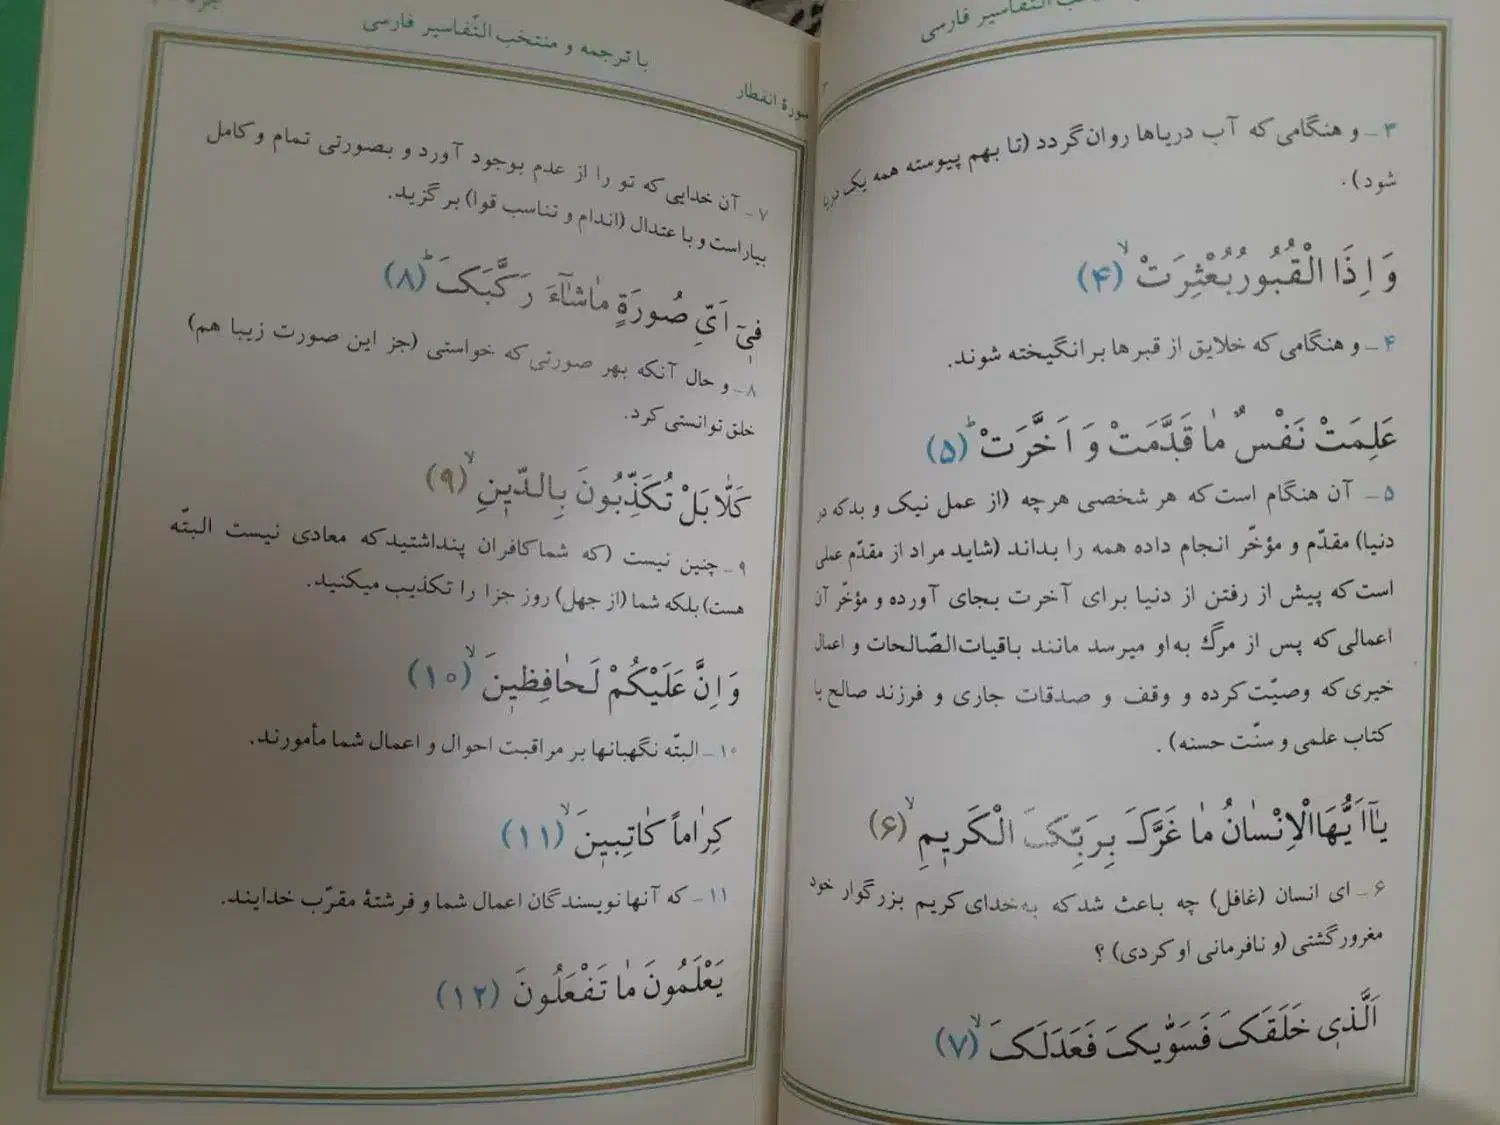 التّفاسیر فارسی
۳ـ و هنگامی که آب دریاها روان گردد (تا بهم پیوسته همه یک دریا
شود).
وَ اِذَا الْقُبُورُ بُعْثِرَتْ ۙ (۴)
۴ـ و هنگامی که خلایق از قبرها برانگیخته شوند.
عَلِمَتْ نَفْسٌ مٰا قَدَّمَتْ وَ اَخَّرَتْ ؕ (۵)
۵ـ آن هنگام است که هر شخصی هرچه (از عمل نیک و بد که در
دنیا) مقدّم و مؤخّر انجام داده همه را بداند (شاید مراد از مقدّم عملی
است که پیش از رفتن از دنیا برای آخرت بجای آورده و مؤخّر آن
اعمالی که پس از مرگ به او میرسد مانند باقیات‌الصّالحات و اعمال
خیری که وصیّت کرده و وقف و صدقات جاری و فرزند صالح با
کتاب علمی و سنّت حسنه).
یٰاۤ اَیُّهَا الْاِنْسٰانُ مٰا غَرَّکَ بِرَبِّکَ الْکَریٖمِ ۙ (۶)
۶ـ ای انسان (غافل) چه باعث شد که به خدای کریم بزرگوار خود
مغرور گشتی (و نافرمانی او کردی) ؟
اَلَّذیٖ خَلَقَکَ فَسَوّٰیکَ فَعَدَلَکَ ۙ (۷)
با ترجمه و منتخب التّفاسیر فارسی
سورهٔ انفطار
۷ـ آن خدایی که تو را از عدم بوجود آورد و بصورتی تمام و کامل
بیاراست و با عتدال (اندام و تناسب قوا) برگزید.
فیٖۤ اَیِّ صُورَةٍ مٰاشٰاۤءَ رَکَّبَکَ ؕ (۸)
۸ـ و حال آنکه بهر صورتی که خواستی (جز این صورت زیبا هم)
خلق توانستی کرد.
کَلّٰا بَلْ تُکَذِّبُونَ بِالدّیٖنِ ۙ (۹)
۹ـ چنین نیست (که شما کافران پنداشتید که معادی نیست البتّه
هست) بلکه شما (از جهل) روز جزا را تکذیب میکنید.
وَ اِنَّ عَلَیْکُمْ لَحٰافِظیٖنَ ۙ (۱۰)
۱۰ـ البتّه نگهبانها بر مراقبت احوال و اعمال شما مأمورند.
کِرٰاماً کٰاتِبیٖنَ ۙ (۱۱)
۱۱ـ که آنها نویسندگان اعمال شما و فرشتهٔ مقرّب خدایند.
یَعْلَمُونَ مٰا تَفْعَلُونَ (۱۲)